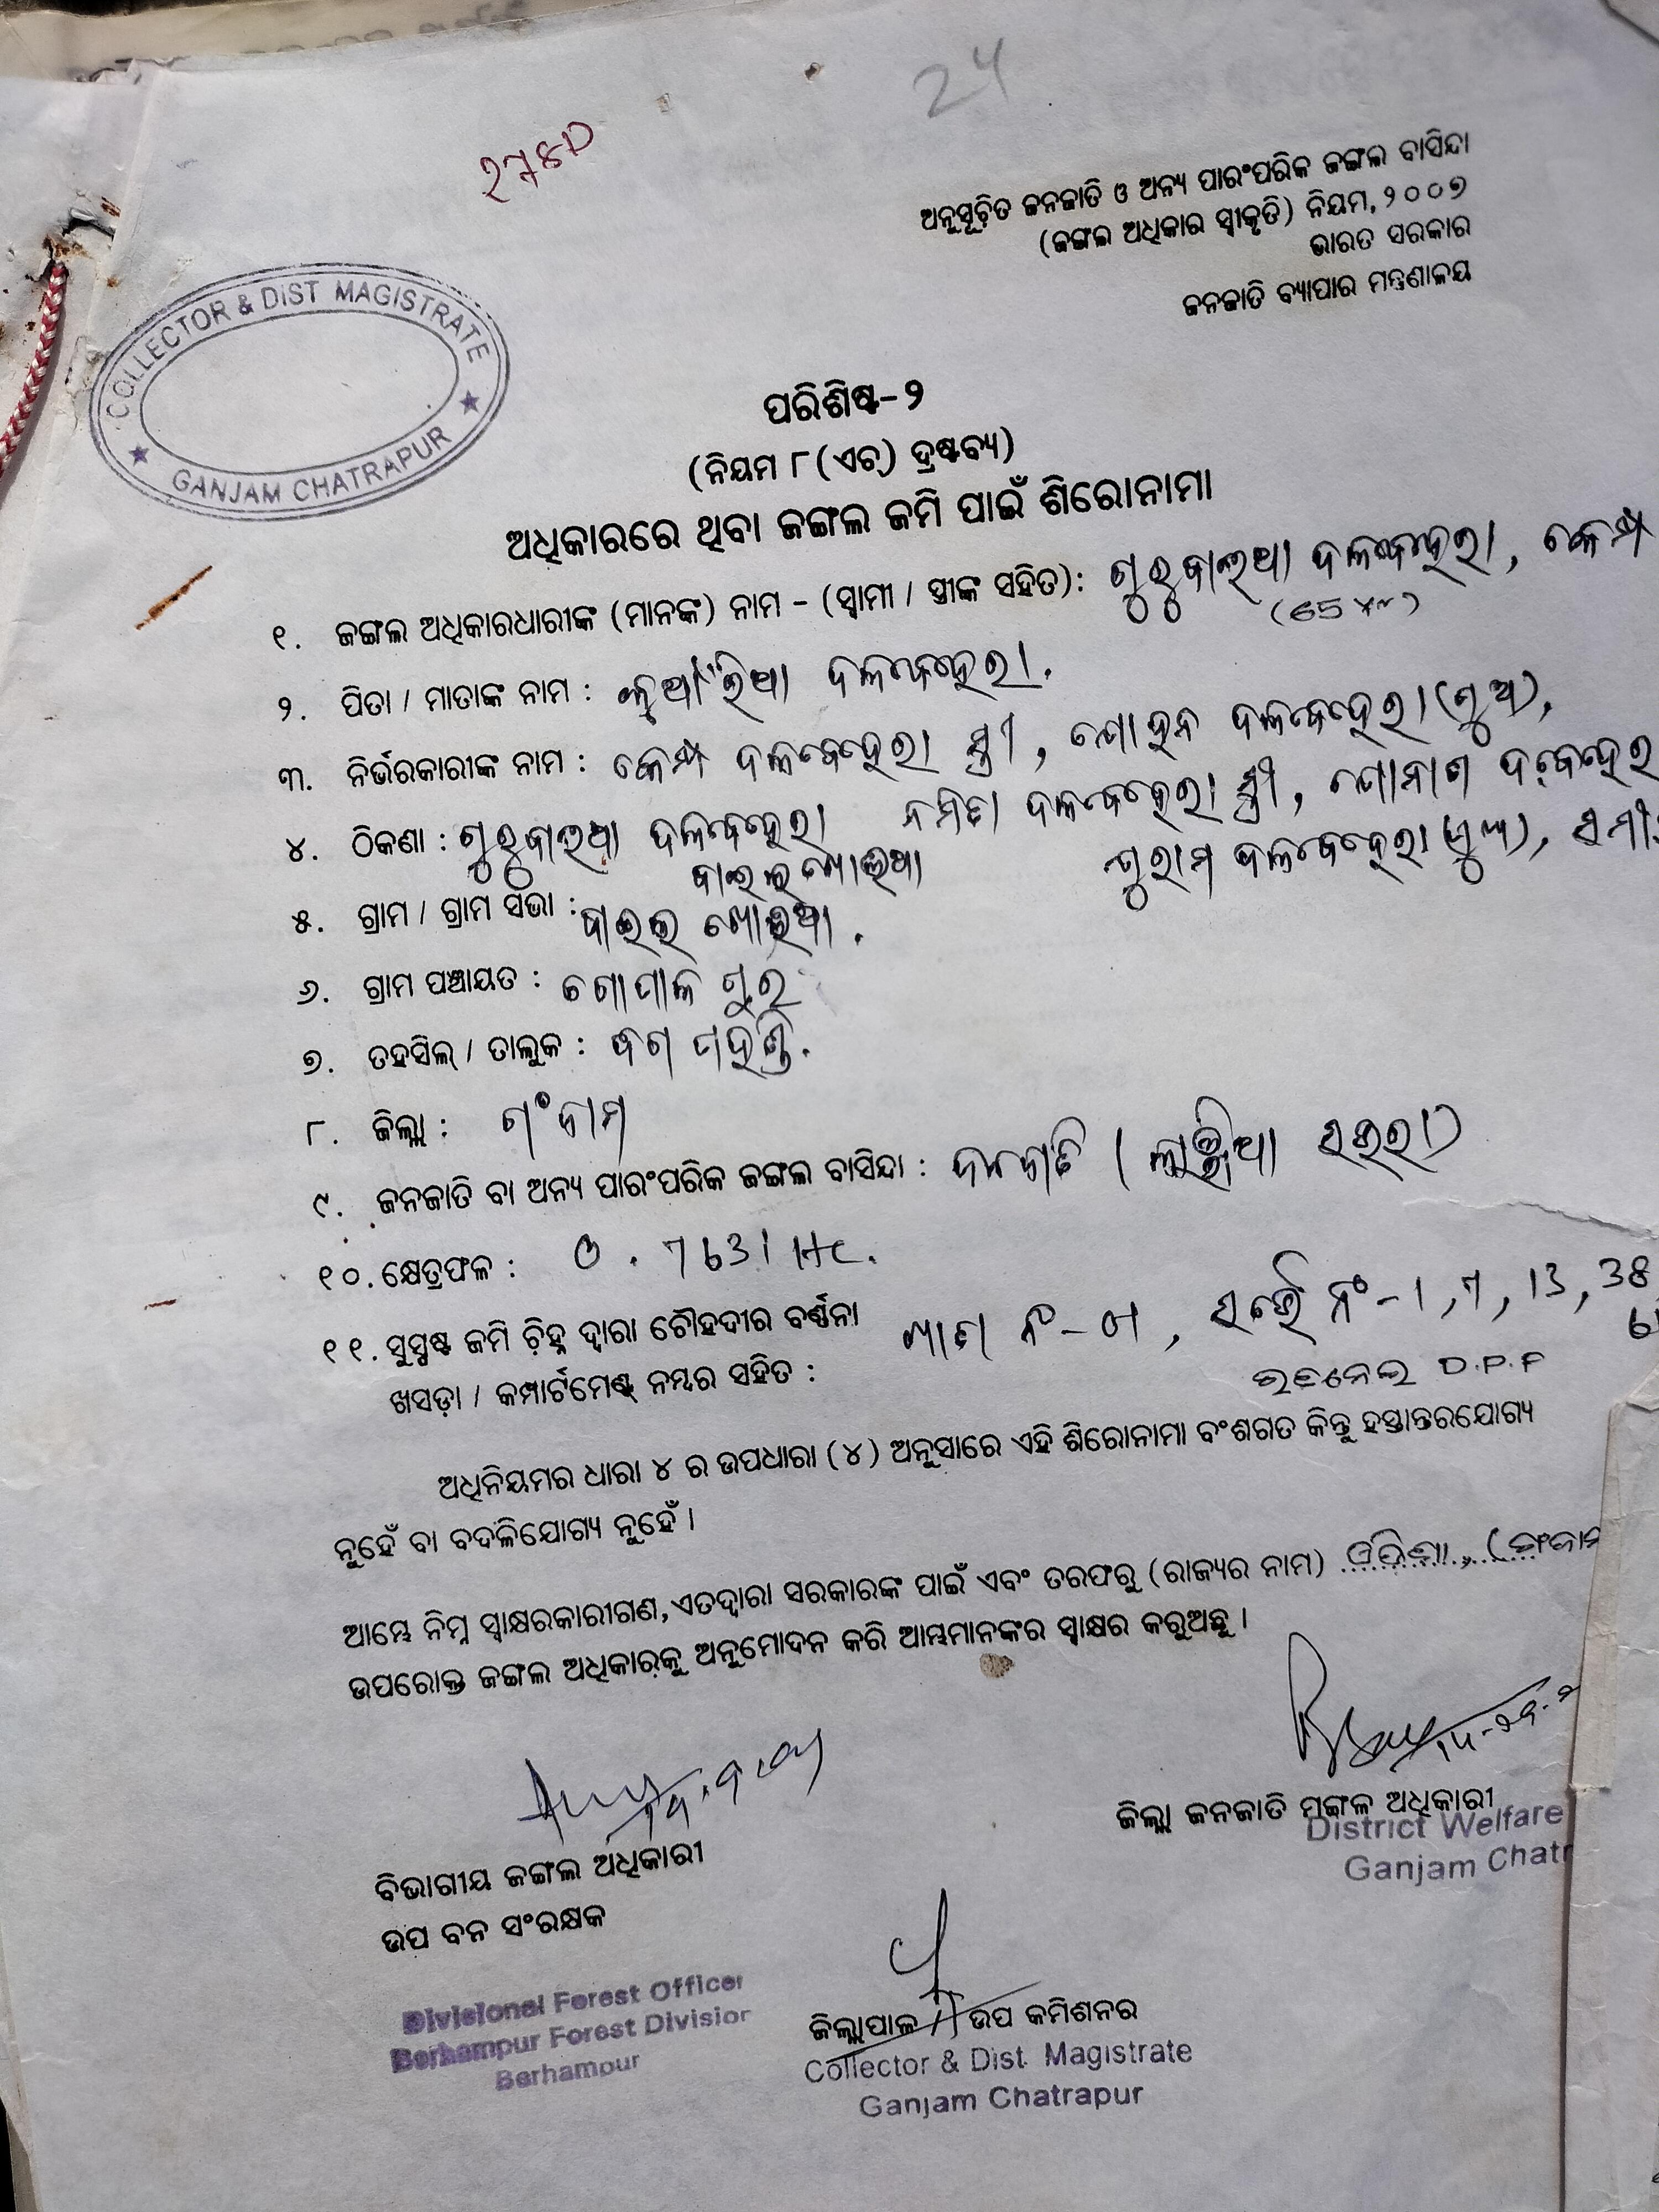 24
ଅନୁସୂଚିତ ଜନଜାତି ଓ ଅନ୍ୟ ପାରଂପରିକ ଜଙ୍ଗଲ ବାସିନ୍ଦା
(ଜଙ୍ଗଲ ଅଧିକାର ସ୍ୱୀକୃତି) ନିୟମ, ୨୦୦୭
ଭାରତ ସରକାର
ଜନଜାତି ବ୍ୟାପାର ମନ୍ତ୍ରଣାଳୟ
COLLECTOR & DIST MAGISTRATE
GANJAM CHATRAPUR
ପରିଶିଷ୍ଟ-୨
(ନିୟମ ୮(ଏଚ୍) ଦ୍ରଷ୍ଟବ୍ୟ)
ଅଧିକାରରେ ଥିବା ଜଙ୍ଗଲ ଜମି ପାଇଁ ଶିରୋନାମା
୧. ଜଙ୍ଗଲ ଅଧିକାରଧାରୀଙ୍କ (ମାନଙ୍କ) ନାମ - (ସ୍ୱାମୀ / ସ୍ତ୍ରୀଙ୍କ ସହିତ): ଗୁରୁବାଇଆ ଦଳବେହେରା,
୨. ପିତା / ମାତାଙ୍କ ନାମ : ଦଳବେହେରା.
୩. ନିର୍ଭରକାରୀଙ୍କ ନାମ : ଦଳବେହେରା ସ୍ତ୍ରୀ, ଦଳବେହେରା (ପୁଅ),
ନମିତା ଦଳବେହେରା ସ୍ତ୍ରୀ,
୪. ଠିକଣା : ଗୁରୁବାଇଆ ଦଳବେହେରା
ଦଳବେହେରା (ପୁଅ),
୫. ଗ୍ରାମ / ଗ୍ରାମ ସଭା :
୬. ଗ୍ରାମ ପଞ୍ଚାୟତ : ଗୋପାଳ ପୁର
୭. ତହସିଲ୍ / ତାଲୁକ :
୮. ଜିଲ୍ଲା : ଗଂଜାମ
୯. ଜନଜାତି ବା ଅନ୍ୟ ପାରଂପରିକ ଜଙ୍ଗଲ ବାସିନ୍ଦା : ଜନଜାତି (ଲାଞ୍ଜିଆ ସଉରା)
୧୦. କ୍ଷେତ୍ରଫଳ : 0.7631 Hc.
୧୧. ସୁସ୍ପଷ୍ଟ ଜମି ଚିହ୍ନ ଦ୍ୱାରା ଚୌହଦୀର ବର୍ଣ୍ଣନା ଖାତା ନଂ- , ସର୍ଭେ ନଂ-1, 7, 13, 38,
ଖସଡ଼ା / କମ୍ପାର୍ଟମେଣ୍ଟ୍ ନମ୍ବର ସହିତ : D.P.F
ଅଧିନିୟମର ଧାରା ୪ ର ଉପଧାରା (୪) ଅନୁସାରେ ଏହି ଶିରୋନାମା ବଂଶଗତ କିନ୍ତୁ ହସ୍ତାନ୍ତରଯୋଗ୍ୟ
ନୁହେଁ ବା ବଦଳିଯୋଗ୍ୟ ନୁହେଁ ।
ଆମ୍ଭେ ନିମ୍ନ ସ୍ୱାକ୍ଷରକାରୀଗଣ, ଏତଦ୍ୱାରା ସରକାରଙ୍କ ପାଇଁ ଏବଂ ତରଫରୁ (ରାଜ୍ୟର ନାମ) ଓଡିଶା,
ଉପରୋକ୍ତ ଜଙ୍ଗଲ ଅଧିକାରକୁ ଅନୁମୋଦନ କରି ଆମ୍ଭମାନଙ୍କର ସ୍ୱାକ୍ଷର କରୁଅଛୁ ।
ଜିଲ୍ଲା ଜନଜାତି ମଙ୍ଗଳ ଅଧିକାରୀ
District Welfare
Ganjam Chatr
ବିଭାଗୀୟ ଜଙ୍ଗଲ ଅଧିକାରୀ
ଉପ ବନ ସଂରକ୍ଷକ
Divisional Forest Officer
Berhampur Forest Division
Berhampur
ଜିଲ୍ଲାପାଳ / ଉପ କମିଶନର
Collector & Dist. Magistrate
Ganjam Chatrapur